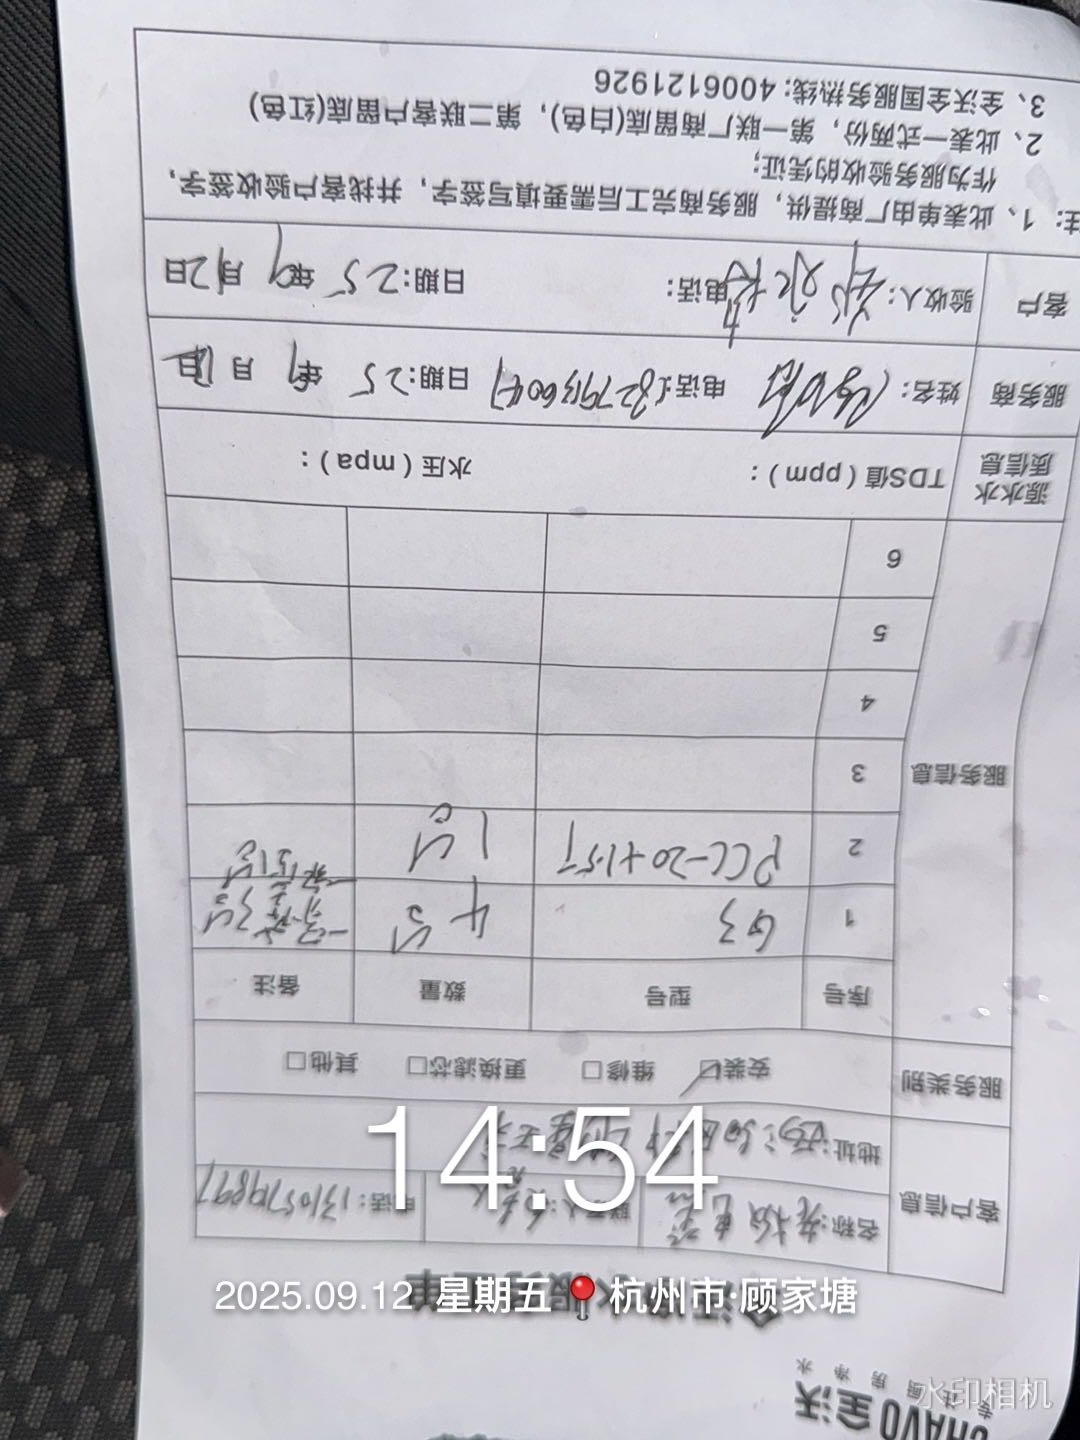 CHAVO全沃
专注厨房净水
服务工单
客户信息
名称:
联系人:
电话: 13105719897
地址:
服务类别
安装☑ 维修□ 更换滤芯□ 其他□
服务信息
序号 型号 数量 备注
1 G3 4台
2 PCC-20+1.5T 1台
3
4
5
6
源水水质信息
TDS值(ppm): 水压(mpa):
服务商
姓名: 电话: 日期:25年9月12日
客户
验收人: 电话: 日期:25年9月12日
注: 1、此表单由厂商提供，服务商完工后需要填写签字，并找客户验收签字，
作为服务验收的凭证；
2、此表一式两份，第一联厂商留底(白色)，第二联客户留底(红色)
3、全沃全国服务热线: 4006121926
14:54
2025.09.12 星期五 杭州市·顾家塘
水印相机